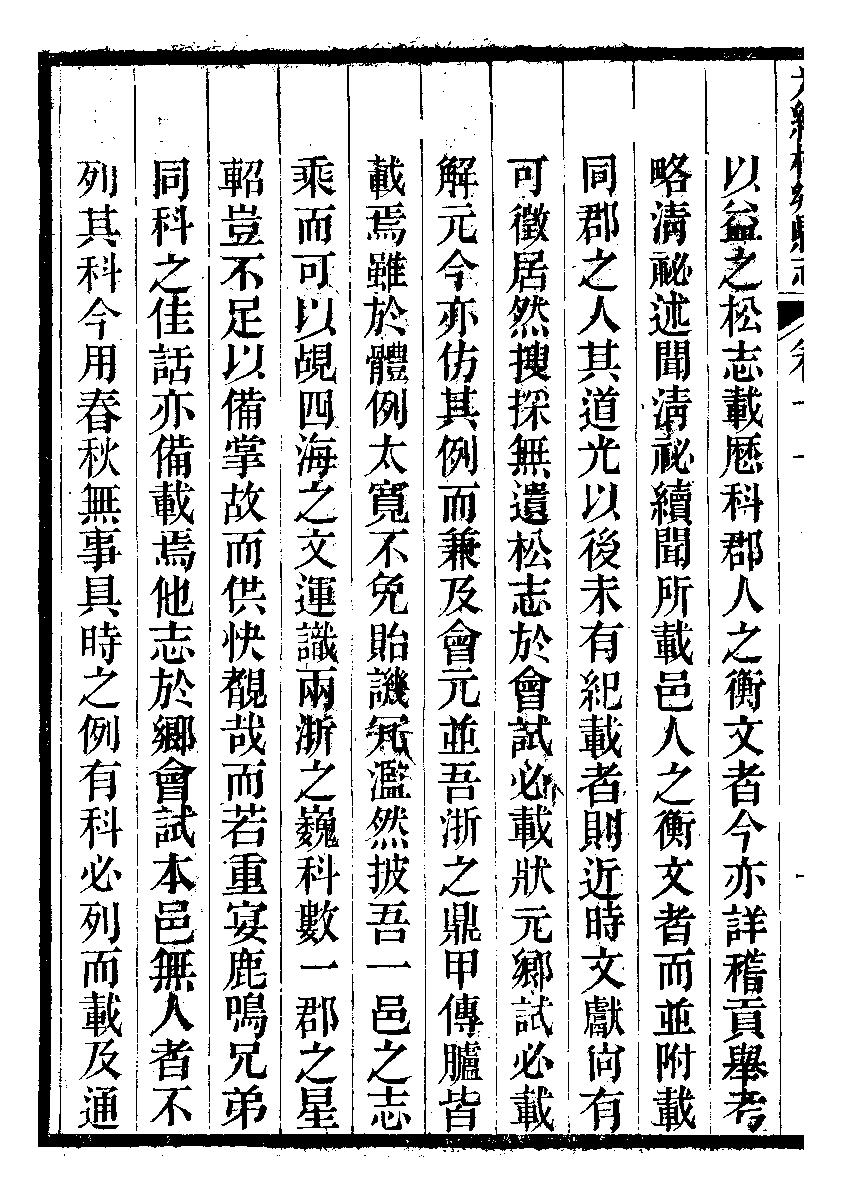 以益之松志載厯科郡人之衡文者今亦詳稽貢舉考
略淸祕述聞淸祕續聞所載邑人之衡文者而並附載
同郡之人其道光以後未有紀載者則近時文獻尙有
可徵居然搜採無遺松志於會試必載狀元鄉試必載
解元今亦仿其例而兼及會元並吾浙之鼎甲傳臚皆
載焉雖於體例太寬不免貽譏冗濫然披吾一邑之志
乘而可以覘四海之文運識兩浙之巍科數一郡之星
軺豈不足以備掌故而供快覩哉而若重宴鹿鳴兄弟
同科之佳話亦備載焉他志於鄉會試本邑無人者不
列其科今用春秋無事具時之例有科必列而載及通